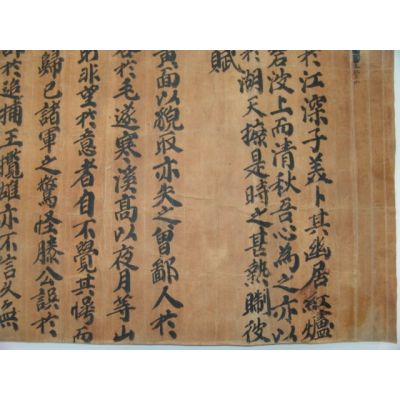 於江深子美卜其幽居紅爐
若沒上而清秋吾心為之亦以
於湖天據是時之甚熱制彼
賦
黃面以貌取亦失之曾鄙人於
若於毛遂寒溪高以夜月等山
則非望於意者自不覺其愕而
歸已諸軍之驚怪滕公誤於
於追捕王攬雄亦不言又無